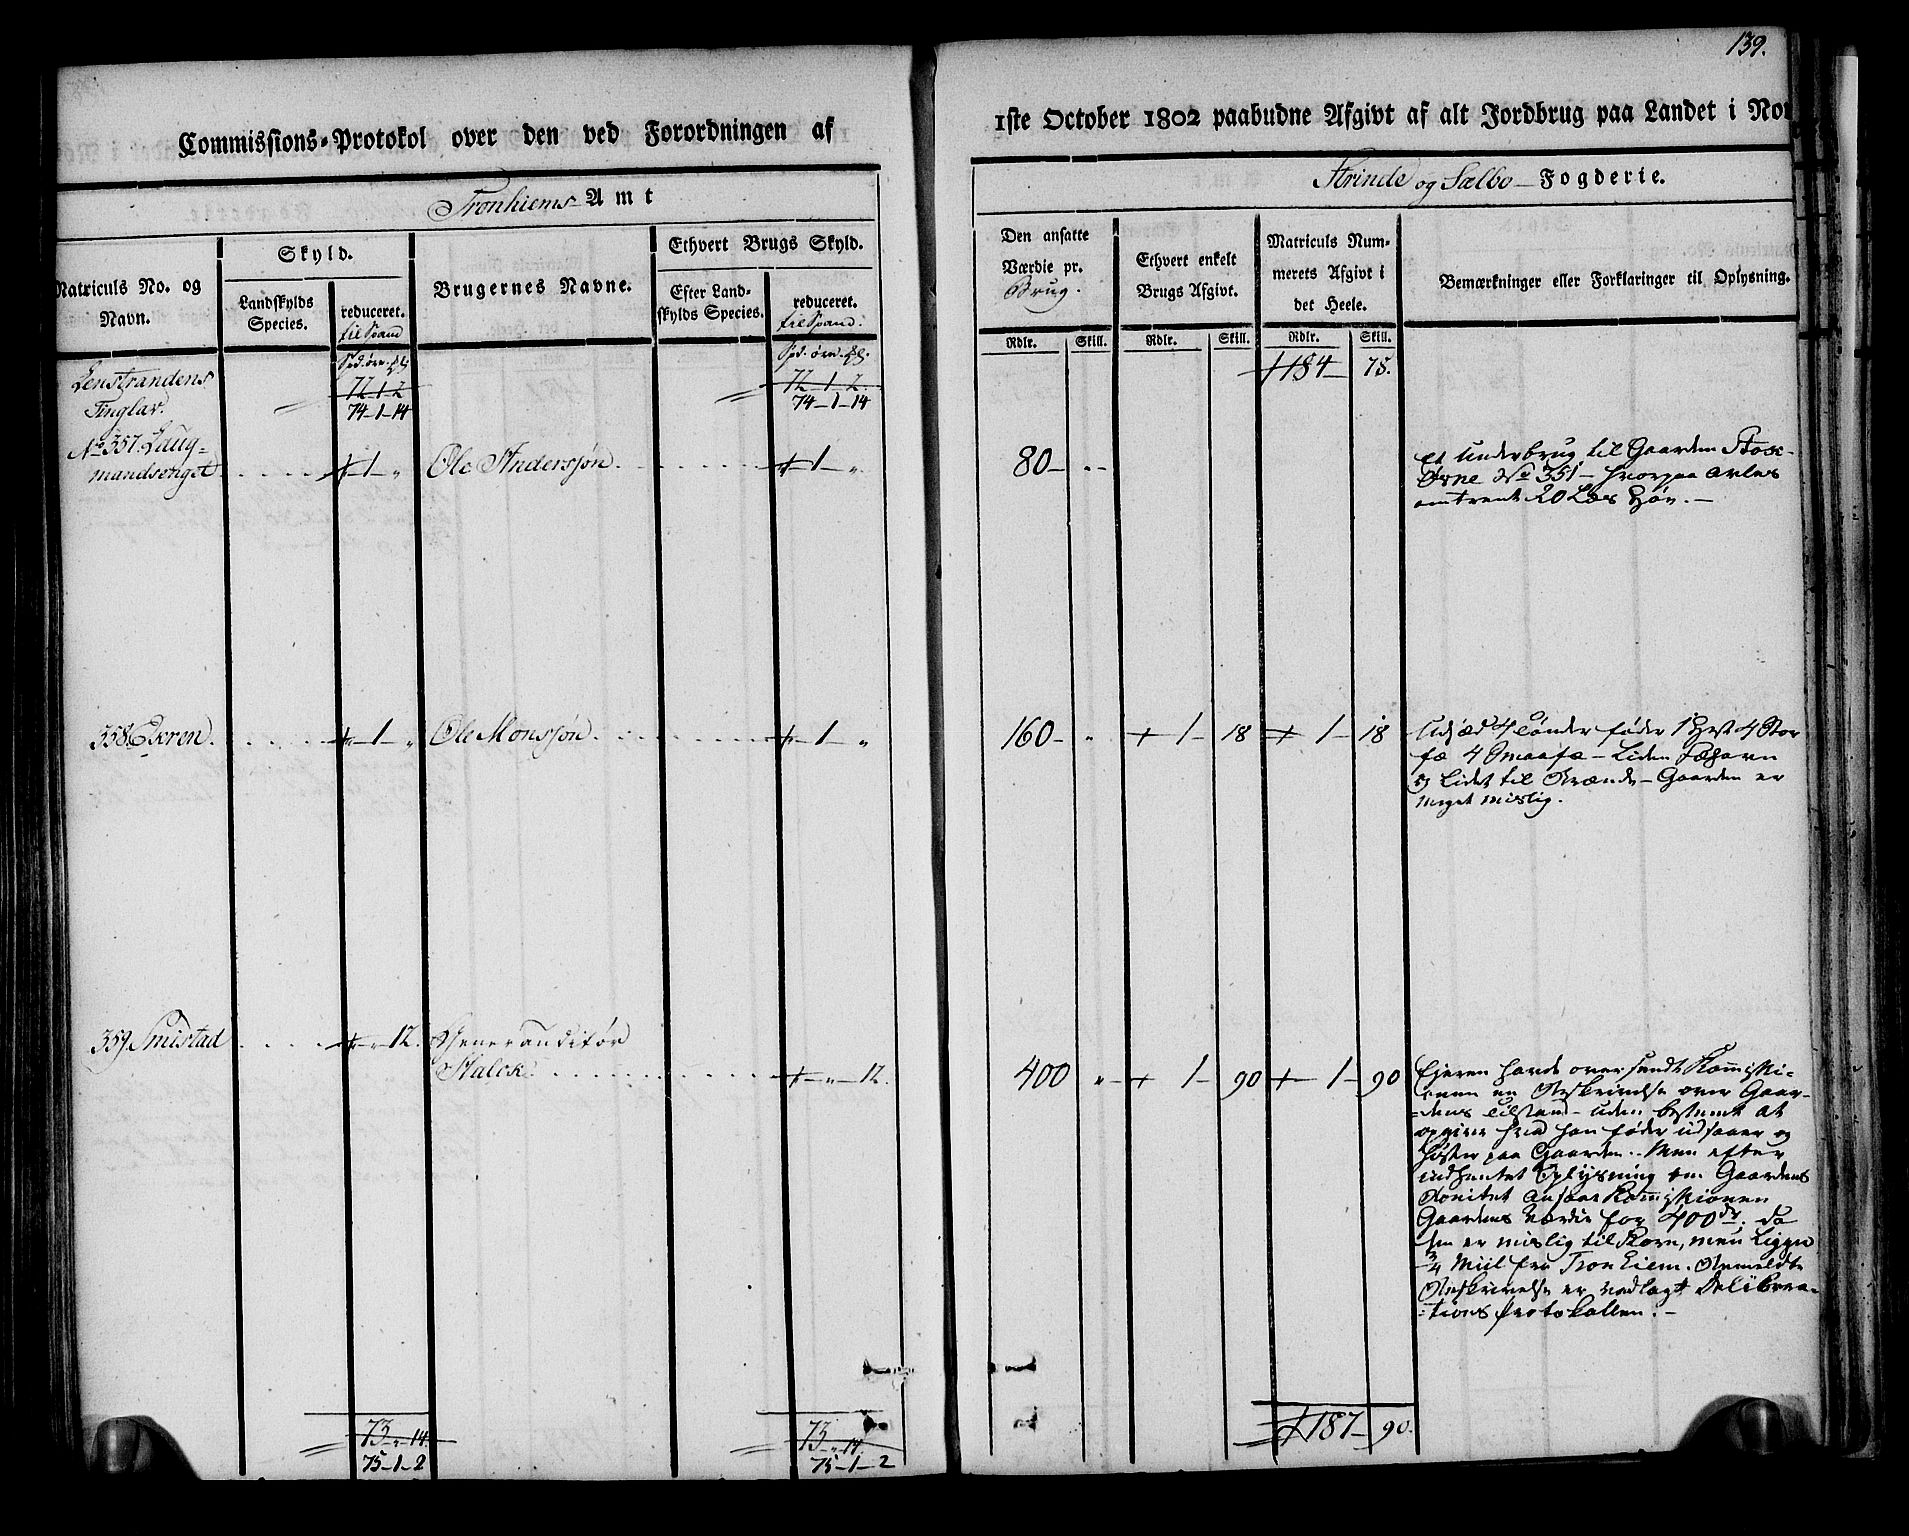 139.
Commissions-Protokol over den ved Forordningen af
1ste October 1802 paabudne Afgivt af alt Jordbrug paa Landet i Nor
Tronhiems Amt
Strinde og Sælbo Fogderie.
Matriculs No. og Navn.
Skyld.
Landskylds Species.
reduceret. til Spand
Brugernes Navne.
Ethvert Brugs Skyld.
Efter Landskylds Species.
reduceret. til Spand.
Den ansatte Værdie pr. Brug.
Ethvert enkelt Brugs Afgivt.
Matriculs Nummerets Afgivt i det Heele.
Bemærkninger eller Forklaringer til Oplysning.
Rdlr. Skill. Rdlr. Skill. Rdlr. Skill.
Lenstrandens
Tinglav.
72-1-2
74-1-14
72-1-2.
74-1-14
1184- 78.
No 357. Laug-
mandsvriget - 1 - " Ole Andersøn - 1 - " 80-
Et Underbrug til Gaarden
No 351 - hvorpaa avles
omtrent 20 Læs Høe. -
358. Ekren. - 1 - " Ole Monssøn - 1 - " 160- " 1- 18 1- 18
Udsæd 4 Tønder føder 1 Hest 4 Stor
fæ 4 Smaafæ - Liden Fæhavn
og Lidet til Brænde - Gaarden er
meget mislig.
359. Smistad - " - 12. Generauditør
Stalck - " - 12. 400 " 1- 90 1- 90
Ejeren havde oversendt Kommissi-
onen en Beskrivelse over Gaar-
dens Tilstand - uden bestemt at
opgive hvad han føder udsaaer og
høster paa Gaarden. - Men efter
indhentet Oplysning om Gaardens
Bonitet ansaae Kommissionen
Gaardens Værdie for 400 dr. da
den er mislig til Korn, men Ligger
3/4 Miil fra Tronhiem. Anmeldte
Beskrivelse er vedlagt Delibera-
tions Protokollen. -
73-"-14.
75-1-2
73-"-14.
75-1-2
1187- 90.